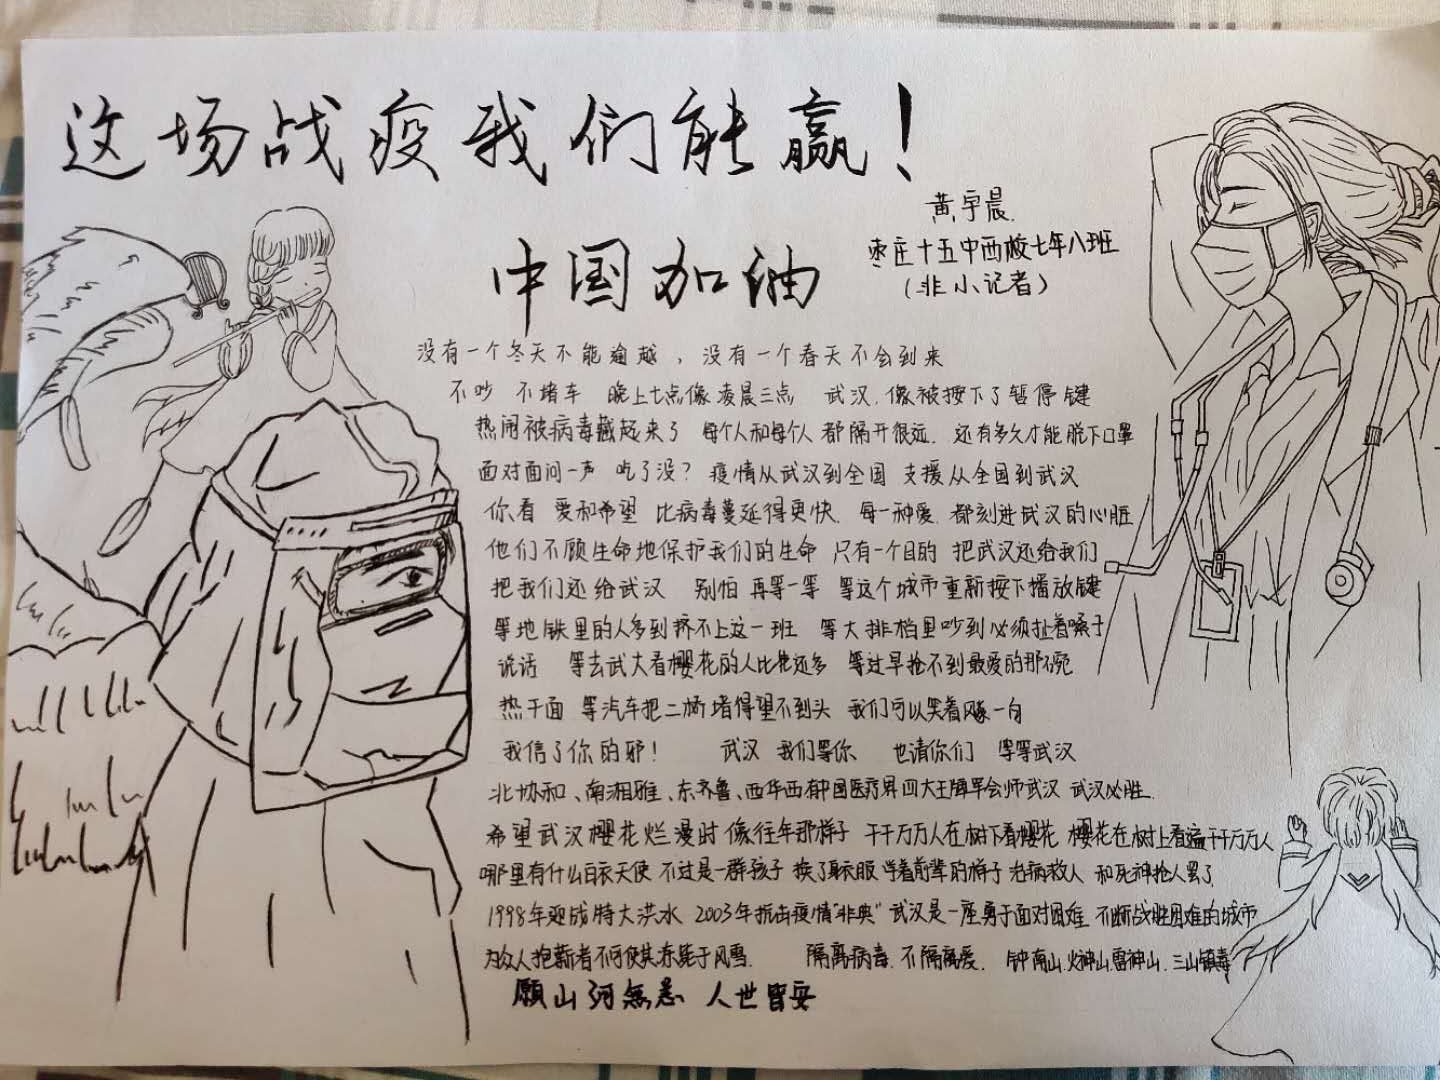 这场战疫我们能赢！
黄宇晨
枣庄十五中西校七年八班
（非小记者）
中国加油
没有一个冬天不能逾越，没有一个春天不会到来
不吵 不堵车 晚上七点像凌晨三点 武汉.像被按下了暂停键
热闹被病毒藏起来了 每个人和每个人都隔开很远. 还有多久才能脱下口罩
面对面问一声 吃了没？疫情从武汉到全国 支援从全国到武汉
你看 爱和希望 比病毒蔓延得更快. 每一种爱.都刻进武汉的心脏
他们不顾生命地保护我们的生命 只有一个目的 把武汉还给我们
把我们还给武汉 别怕 再等一等 等这个城市重新按下播放键
等地铁里的人多到挤不上这一班 等大排档里吵到必须扯着嗓子
说话 等去武大看樱花的人比花还多 等过早抢不到最爱的那碗
热干面 等汽车把二桥堵得望不到头 我们可以笑着啄一句
我信了你的邪！ 武汉 我们等你 也请你们 等等武汉
北协和、南湘雅、东齐鲁、西华西有中国医疗界四大王牌军会师武汉 武汉必胜.
希望武汉樱花烂漫时 像往年那样子 千千万万人在树下看樱花 樱花在树上看遍千千万万人
哪里有什么白衣天使 不过是一群孩子 换了身衣服 学着前辈的样子 治病救人 和死神抢人罢了
1998年迎战特大洪水 2003年抗击疫情“非典” 武汉是一座勇于面对困难 不断战胜困难的城市
为众人抱薪者不可使其冻毙于风雪. 隔离病毒.不隔离爱. 钟南山.火神山.雷神山.三山镇毒
願山河無恙 人世皆安